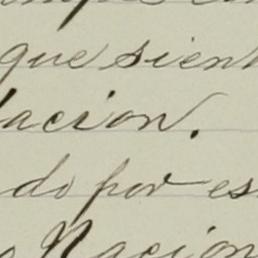 que sien
lacion.
do por es
Nacion